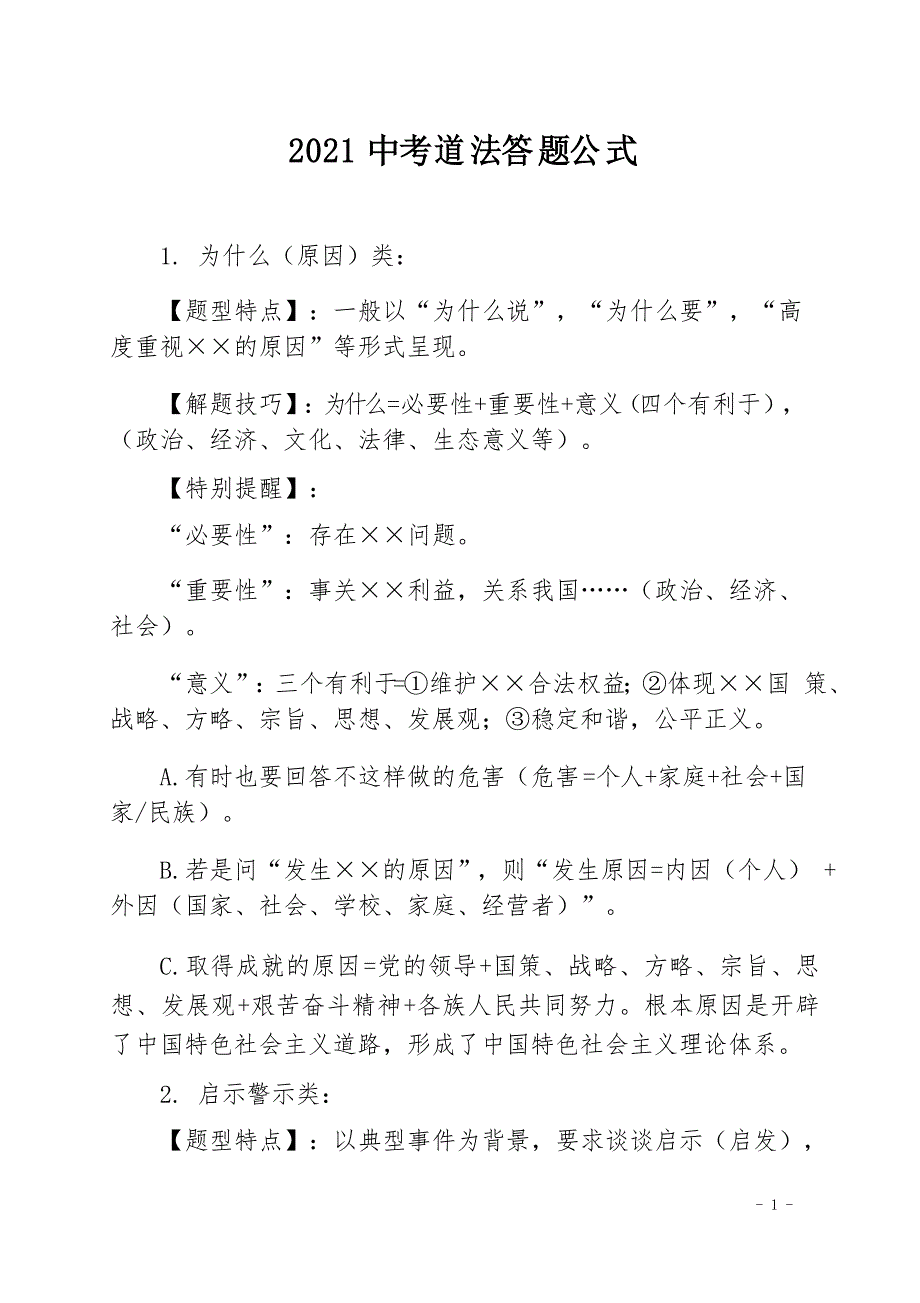 2021 中考道法答题公式
1. 为什么（原因）类：
【题型特点】：一般以“为什么说”，“为什么要”，“高
度重视××的原因”等形式呈现。
【解题技巧】：为什么=必要性+重要性+意义（四个有利于），
（政治、经济、文化、法律、生态意义等）。
【特别提醒】：
“必要性”：存在××问题。
“重要性”：事关××利益，关系我国……（政治、经济、
社会）。
“意义”：三个有利于=①维护××合法权益；②体现××国 策、
战略、方略、宗旨、思想、发展观；③稳定和谐，公平正义。
A.有时也要回答不这样做的危害（危害=个人+家庭+社会+国
家/民族）。
B.若是问“发生××的原因”，则“发生原因=内因（个人） +
外因（国家、社会、学校、家庭、经营者）”。
C.取得成就的原因=党的领导+国策、战略、方略、宗旨、思
想、发展观+艰苦奋斗精神+各族人民共同努力。根本原因是开辟
了中国特色社会主义道路，形成了中国特色社会主义理论体系。
2. 启示警示类：
【题型特点】：以典型事件为背景，要求谈谈启示（启发），
- 1 -